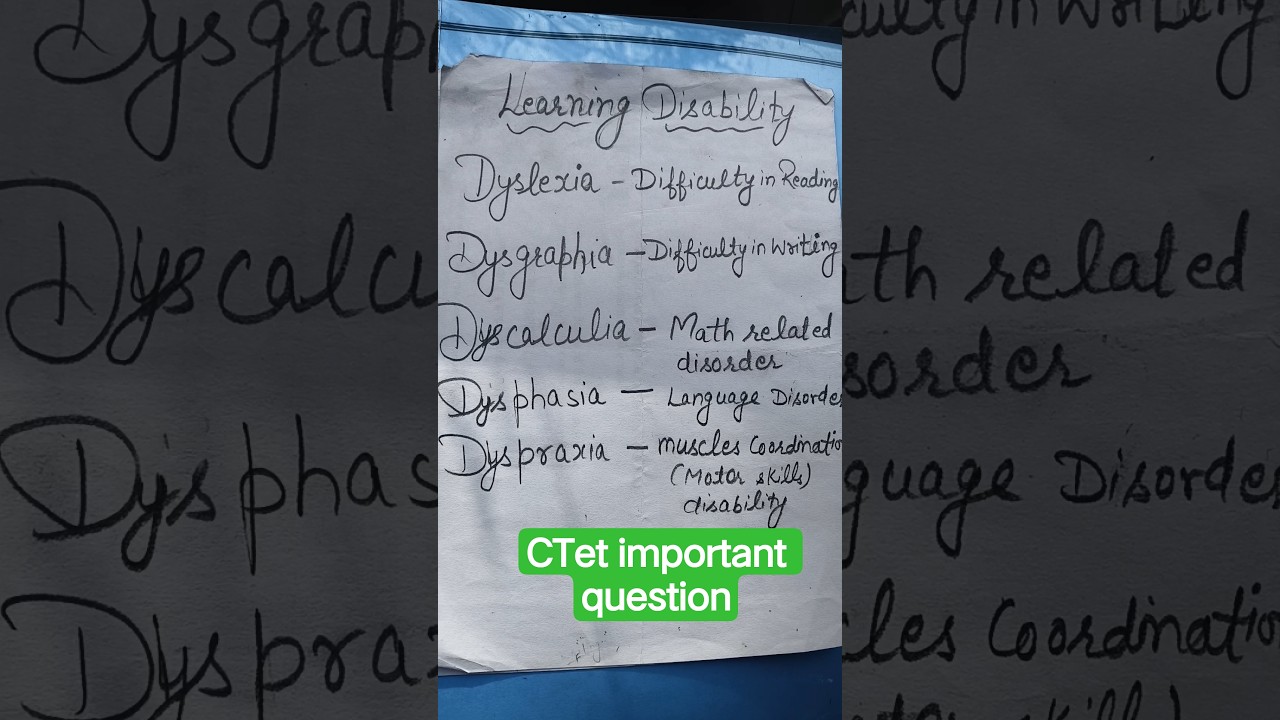 Learning Disability
Dyslexia - Difficulty in Reading
Dysgraphia - Difficulty in Writing
Dyscalculia - Math related
disorder
Dysphasia - Language Disorder
Dyspraxia - muscles Coordination
(Motor skills)
disability
CTet important
question